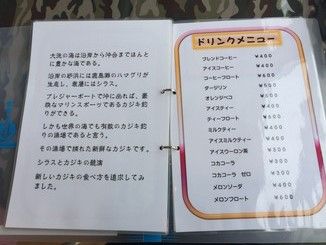 大洗の海は沿岸から沖合までほんと
に豊かな海である。
沿岸の砂浜には鹿島灘のハマグリが
生息し、表層にはシラス。
プレジャーボートで沖に出れば、豪
快なマリンスポーツであるカジキ釣
りができる。
しかも世界の海でも有数のカジキ釣
りの漁場であると言う。
その漁場で捕れた新鮮なカジキです。
シラスとカジキの競演
新しいカジキの食べ方を追求してみ
ました。
ドリンクメニュー
ブレンドコーヒー ¥400
アイスコーヒー ¥400
コーヒーフロート ¥600
ダージリン ¥500
オレンジペコ ¥500
アイスティー ¥400
ティーフロート ¥600
ミルクティー ¥400
アイスミルクティー ¥400
アイスウーロン茶 ¥300
コカコーラ ¥300
コカコーラ ゼロ ¥300
メロンソーダ ¥400
メロンフロート ¥600